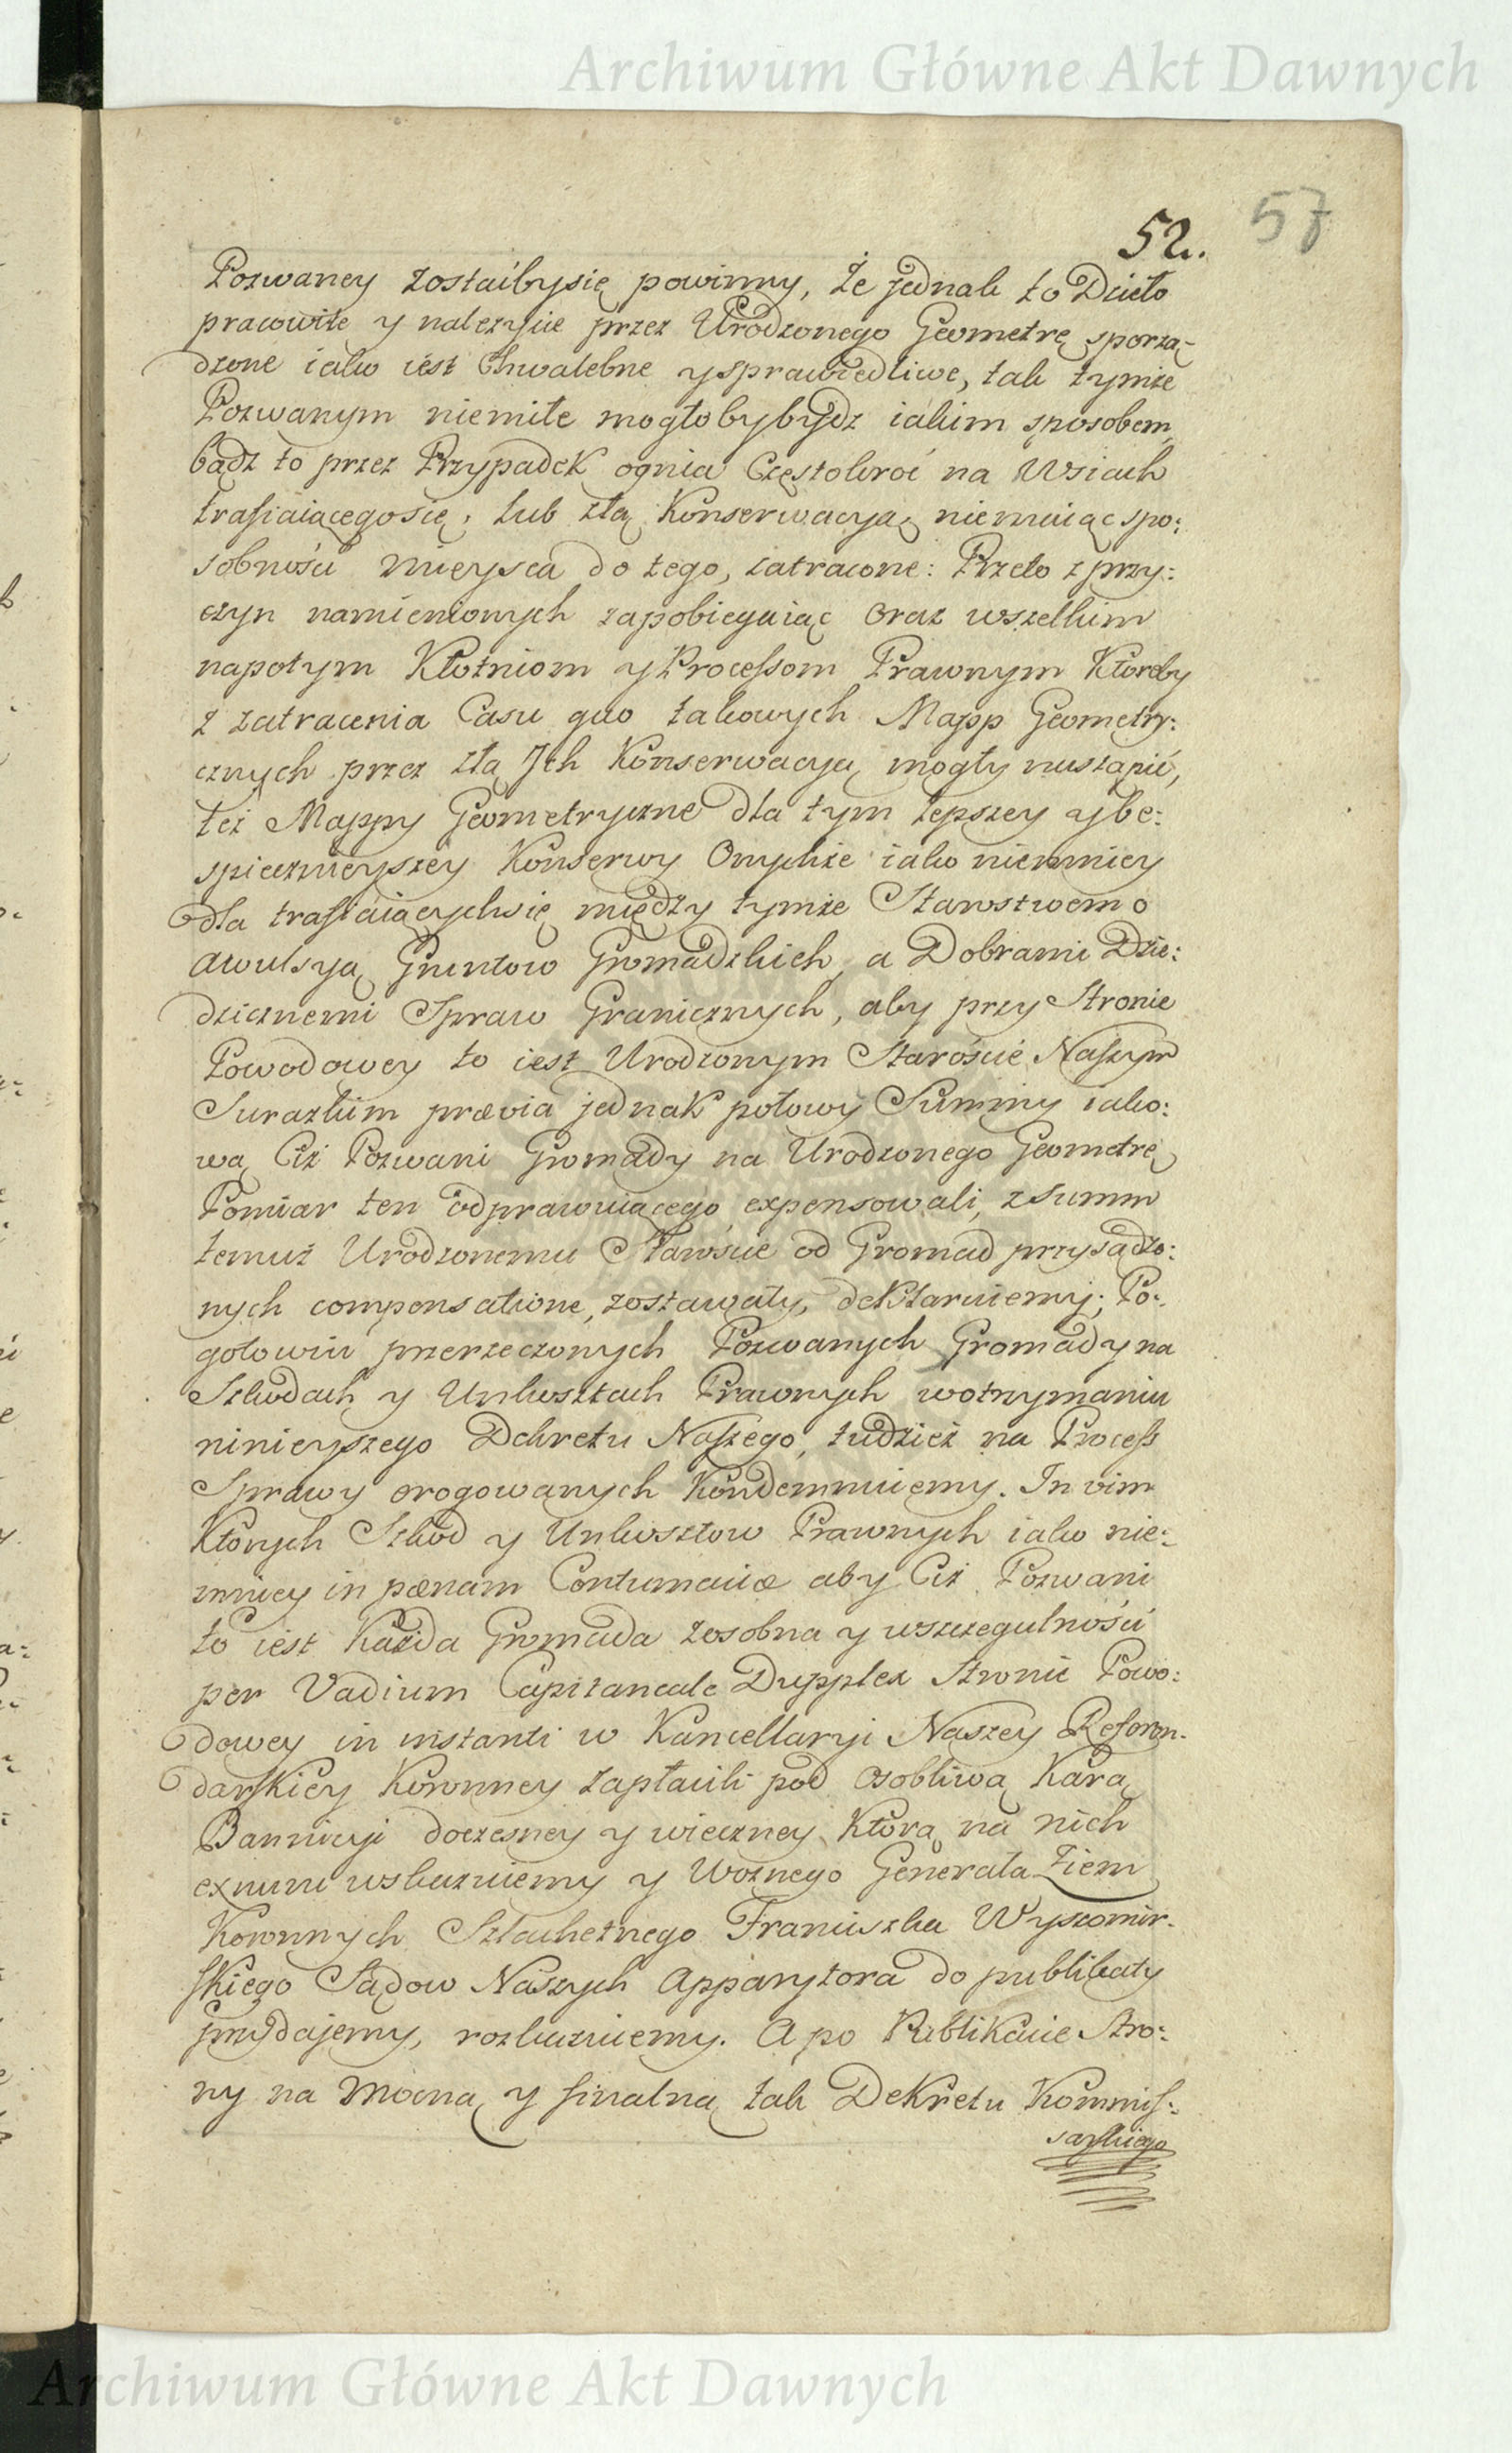 Archiwum Główne Akt Dawnych
57
52.
Pozwaney zostaćbysię powinny, że jednak to Dzieło
pracowite y należycie przez Urodzonego Geometrę sporzą-
dzone iako iest Chwalebne y sprawiedliwe, tak tymże
Pozwanym niemiłe mogłobybydz iakim sposobem,
bądz to przez Przypadek ognia Częstokroć na Wsiach
trafiaiącegosię, lub złą Konserwacyą, niemaiąc spo:
sobności mieysca do tego, zatracone: Przeto z przy:
czyn namienionych zapobiegaiąc oraz wszelkim
napotym Kłotniom y Processom Prawnym Ktoreby
z zatracenia Casu quo takowych Mapp Geometry:
cznych przez złą Jch Konserwacyą mogły nastąpić,
też Mappy Geometryczne dla tym lepszey y be:
spiecznieyszey Konserwy Onychże iako niemniey
dla trafiaiącychsię między tymże Starostwem o
awulsyą Gruntow Gromadzkich, a Dobrami Dzie:
dzicznemi Spraw Granicznych, aby przy Stronie
Powodowey to iest Urodzonym Staroście Naszym
Surazkim prævia jednak połowy Summy iako:
wą Ciż Pozwani Gromady na Urodzonego Geometrę
Pomiar ten odprawuiącego expensowali, z Summ
temuż Urodzonemu Staroście od Gromad przysądzo:
nych compensatione, zostawały, deklaruiemy; Po:
gotowiu przerzeczonych Pozwanych Gromady na
Szkodach y Unkosztach Prawnych wotrzymaniu
ninieyszego Dekretu Naszego, tudzież na Process
Sprawy erogowanych Kondemnuiemy. In vim
Ktorych Szkod y Unkosztow Prawnych iako nie:
mniey in pœnam Contumaciæ aby Ciż Pozwani
to iest Każda Gromada zosobna y wszczegulności
per Vadium Capitaneale Dupplex Stronie Powo:
dowey in instanti w Kancellaryi Naszey Referen-
darskiey Koronney zapłacili pod osobliwą Karą
Bannicyi doczesney y wieczney, Ktorą na nich
exnunc wskazuiemy y Woznego Generała Ziem
Koronnych Szlachetnego Franciszka Wyszomir-
skiego Sądow Naszych Apparytora do publikaty
przydajemy, rozkazuiemy. A po Publikacie Stro:
ny na Mocną y finalną tak Dekretu Kommis:
sarskiego
Archiwum Główne Akt Dawnych